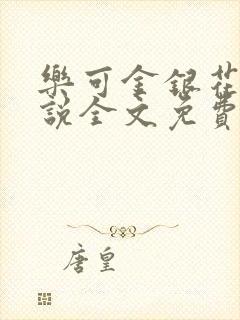 樂可金銀花
說全文免費
唐皇